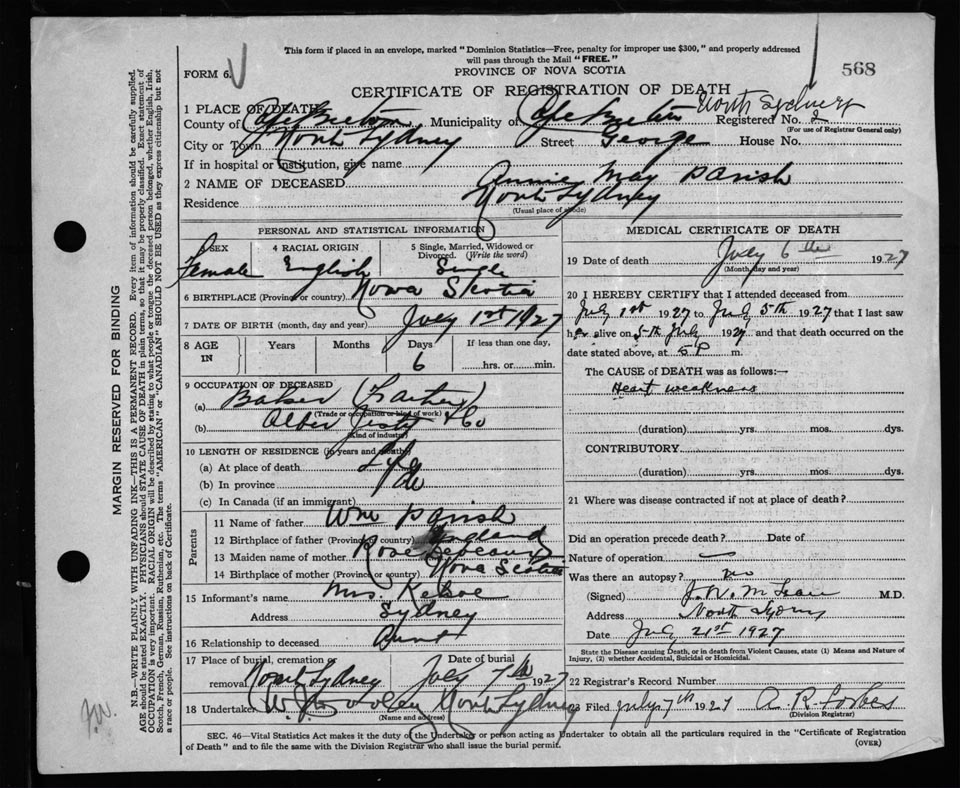 This form if placed in an envelope, marked "Dominion Statistics—Free, penalty for improper use $300," and properly addressed
will pass through the Mail "FREE."
FORM 6.
PROVINCE OF NOVA SCOTIA
568
CERTIFICATE OF REGISTRATION OF DEATH
1 PLACE OF DEATH
North Sydney
County of Cape Breton Municipality of Cape Breton Registered No. 2
(For use of Registrar General only)
City or Town North Sydney Street George House No.
If in hospital or institution, give name
2 NAME OF DECEASED Annie May Parish
Residence North Sydney
(Usual place of abode)
PERSONAL AND STATISTICAL INFORMATION
3 SEX 4 RACIAL ORIGIN 5 Single, Married, Widowed or
Divorced. (Write the word)
Female English Single
6 BIRTHPLACE (Province or country) Nova Scotia
7 DATE OF BIRTH (month, day and year) July 1st 1927
8 AGE IN Years Months Days If less than one day,
6 ......hrs. or......min.
9 OCCUPATION OF DECEASED
(a) Baker (Father)
(Trade or occupation or kind of work)
(b) & Co
(Kind of industry)
10 LENGTH OF RESIDENCE (in years and months)
(a) At place of death Life
(b) In province
(c) In Canada (if an immigrant)
Parents
11 Name of father Wm Parish
12 Birthplace of father (Province or country) England
13 Maiden name of mother Rose
14 Birthplace of mother (Province or country) Nova Scotia
15 Informant's name Mrs.
Address Sydney
16 Relationship to deceased Aunt
17 Place of burial, cremation or Date of burial
removal North Sydney July 7th 1927
18 Undertaker North Sydney
(Name and address)
MEDICAL CERTIFICATE OF DEATH
19 Date of death July 6th 1927
(Month, day and year)
20 I HEREBY CERTIFY that I attended deceased from
July 1st 1927 to July 5th 1927 that I last saw
her alive on 5th July 1927 and that death occurred on the
date stated above, at 5 P m.
The CAUSE of DEATH was as follows:—
Heart weakness
(duration) yrs. mos. dys.
CONTRIBUTORY
(duration) yrs. mos. dys.
21 Where was disease contracted if not at place of death?
Did an operation precede death? Date of
Nature of operation
Was there an autopsy? no
(Signed) M.D.
Address North Sydney
Date July 21st 1927
State the Disease causing Death, or in death from Violent Causes, state (1) Means and Nature of
Injury, (2) whether Accidental, Suicidal or Homicidal.
22 Registrar's Record Number
23 Filed July 7th 1927 A. R. Forbes
(Division Registrar)
SEC. 46—Vital Statistics Act makes it the duty of the Undertaker or person acting as Undertaker to obtain all the particulars required in the "Certificate of Registration
of Death" and to file the same with the Division Registrar who shall issue the burial permit.
(OVER)
MARGIN RESERVED FOR BINDING
N.B.—WRITE PLAINLY WITH UNFADING INK—THIS IS A PERMANENT RECORD. Every item of information should be carefully supplied.
AGE should be stated EXACTLY. PHYSICIANS should STATE CAUSE OF DEATH in plain terms, so that it may be properly classified. Exact statement of
OCCUPATION is very important. RACIAL ORIGIN will be described by stating to what people or tongue the deceased person belonged, whether English, Irish,
Scotch, French, German, Russian, Ruthenian, etc. The terms "AMERICAN" or "CANADIAN" SHOULD NOT BE USED as they express citizenship but not
a race or people. See instructions on back of Certificate.